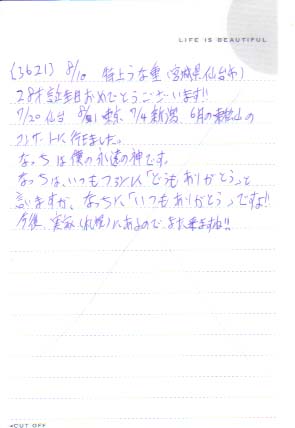 LIFE IS BEAUTIFUL
(3621) 8/10 特上うな重(宮城県仙台市)
28才誕生日おめでとうございます!!
7/20仙台 東京、7/4新潟、6月の松山の
コンサートに行きました。
なっちは僕の永遠の神です。
なっちは、いつもファンに「どうもありがとう」と
言いますが、なっちに「いつもありがとう」ですよ!!
今後、実家(札幌)にあるので また来ますね!!
CUT OFF